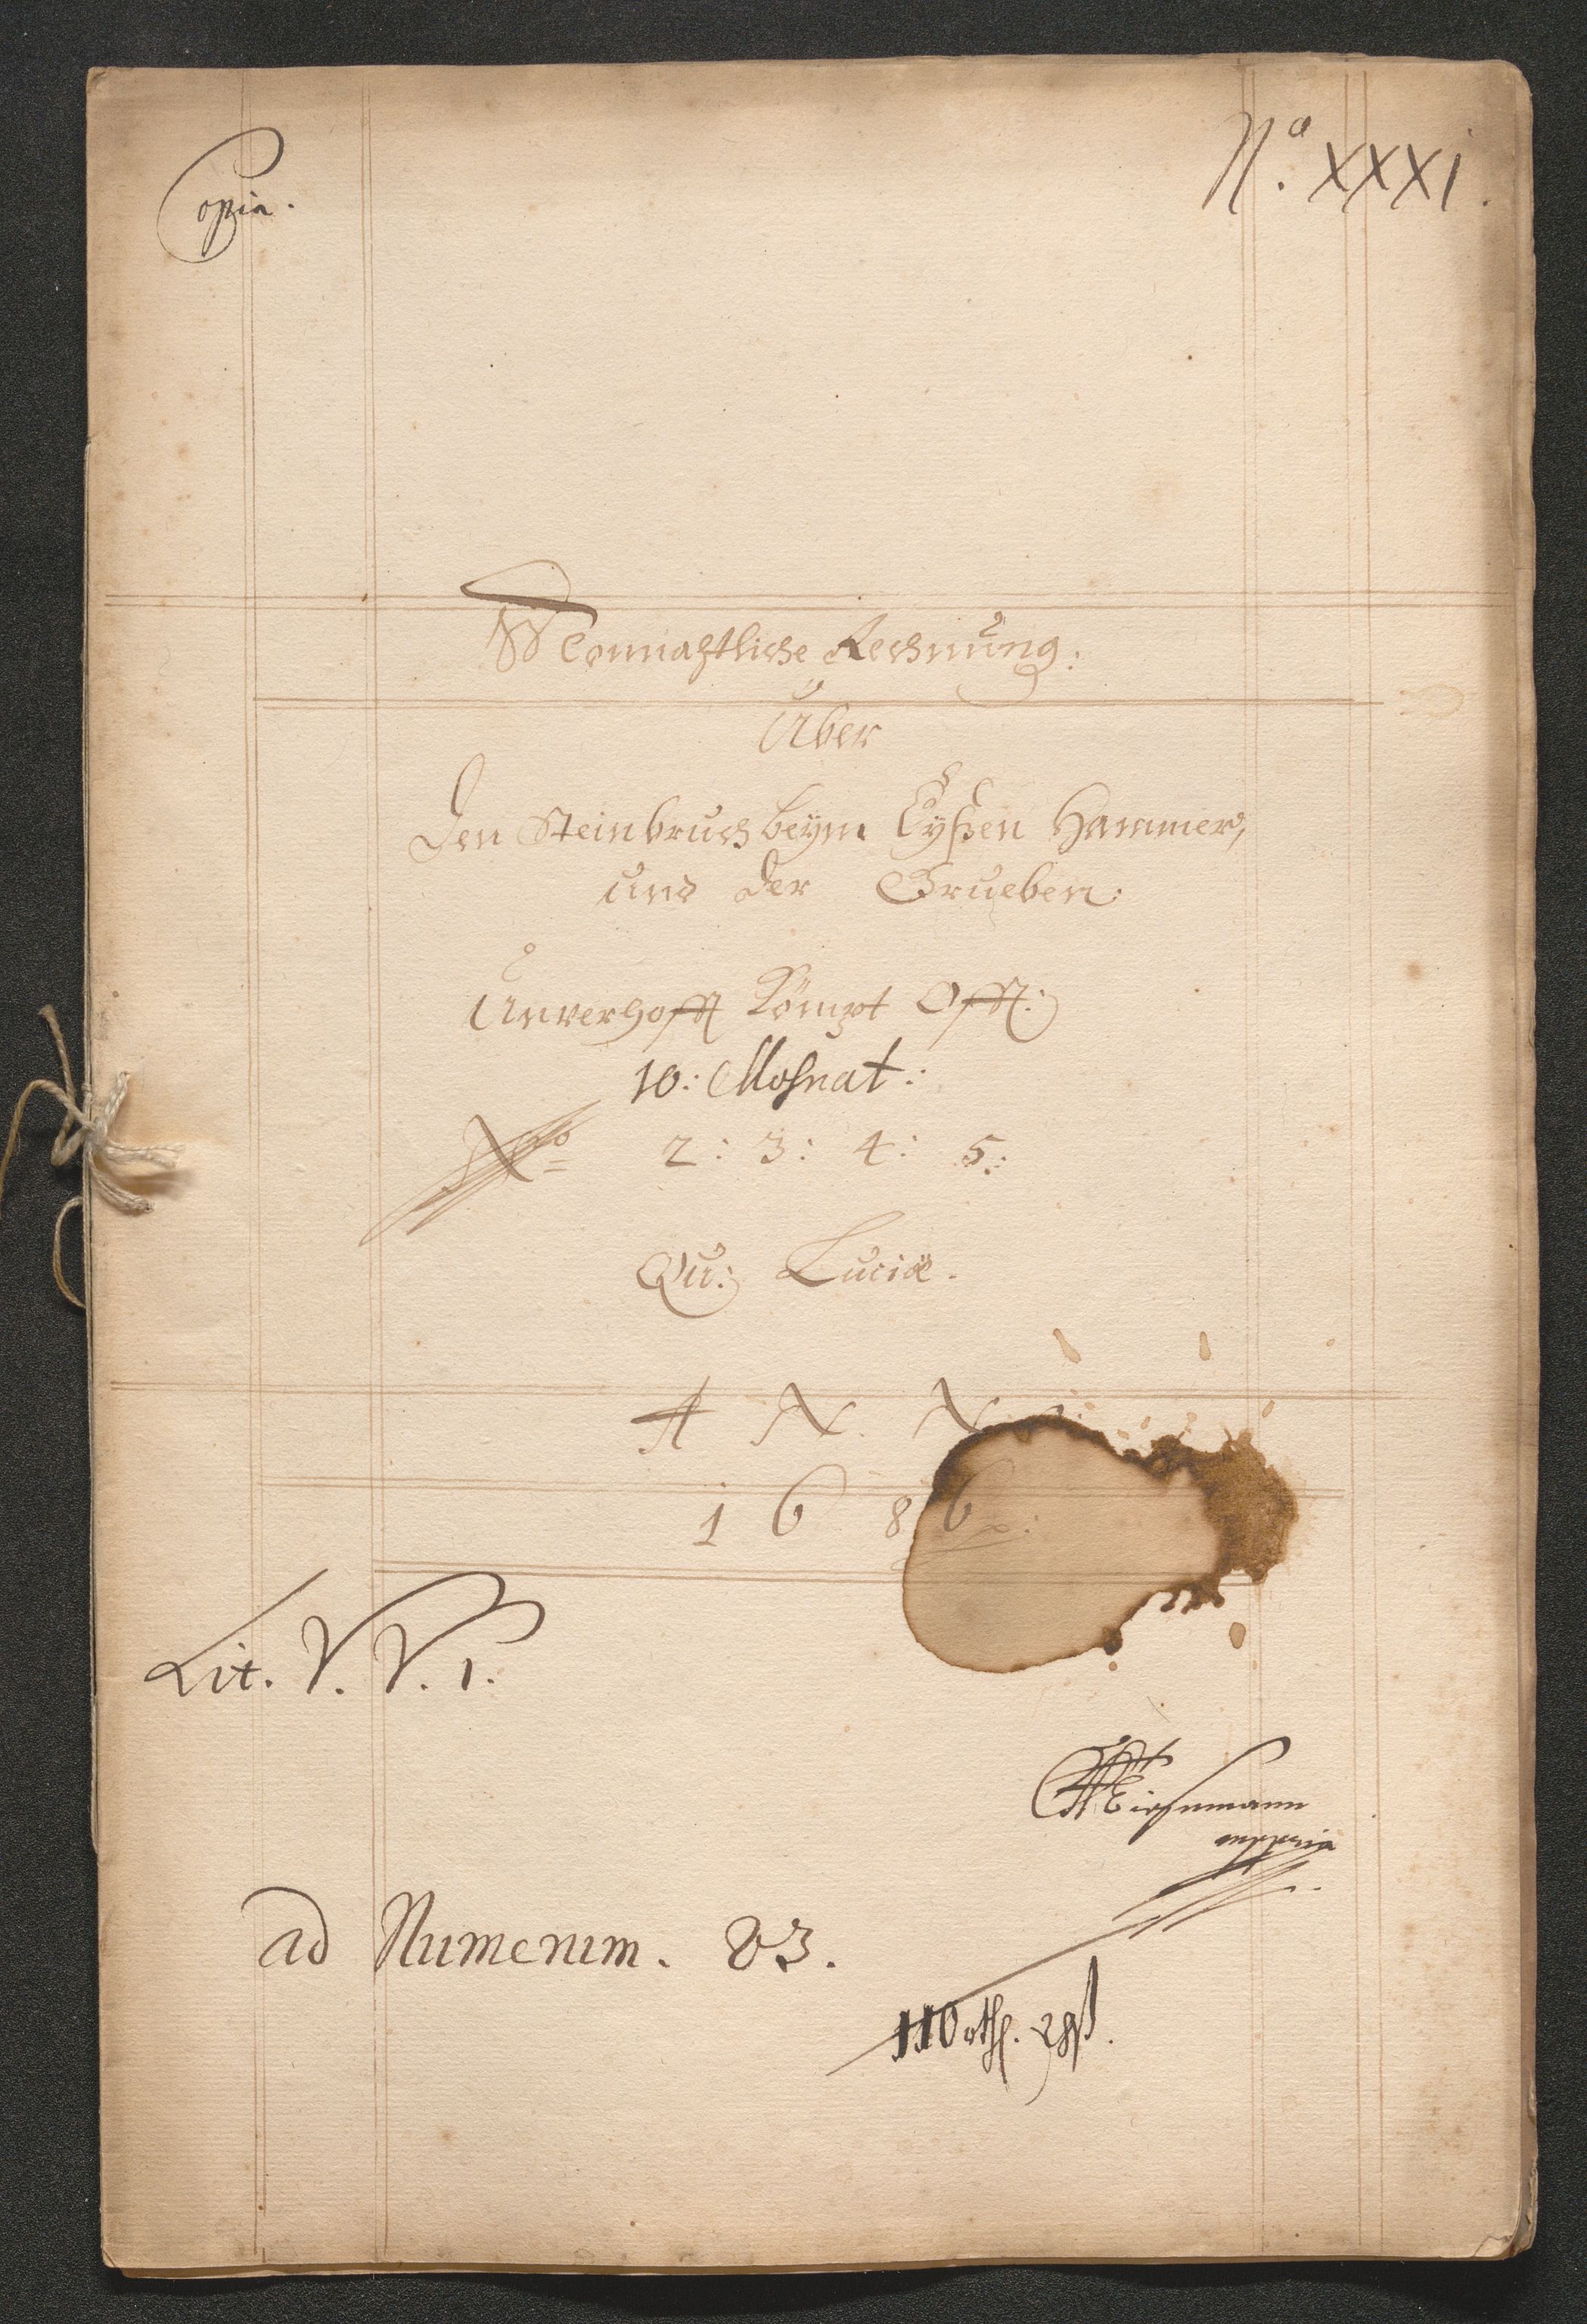 Copia.
No. XXXI.
Monnahtliche Rechnung:
Über
Den Steinbruch beÿm Eÿßen Hammer,
und der Grueben:
Unverhofft Kömpt Offt:
10: Mohnat:
No 2: 3: 4: 5:
Qu: Luciæ.
A N N o:
1 6 8 6
Lit. V. V. 1.
mppria
ad Numerum. 83.
110 rth.